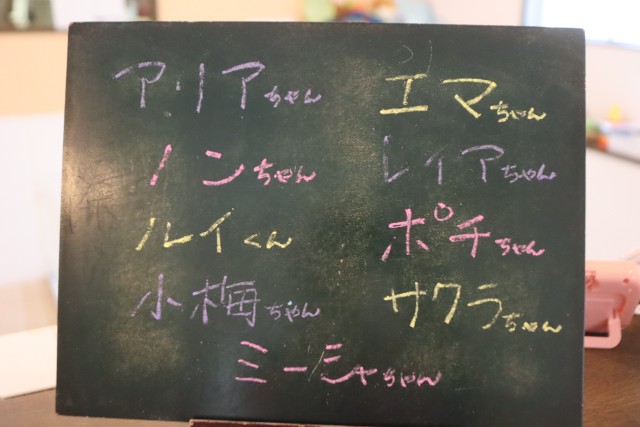 アリアちゃん エマちゃん
ノンちゃん レイアちゃん
ルイくん ポチちゃん
小梅ちゃん サクラちゃん
ミーシャちゃん